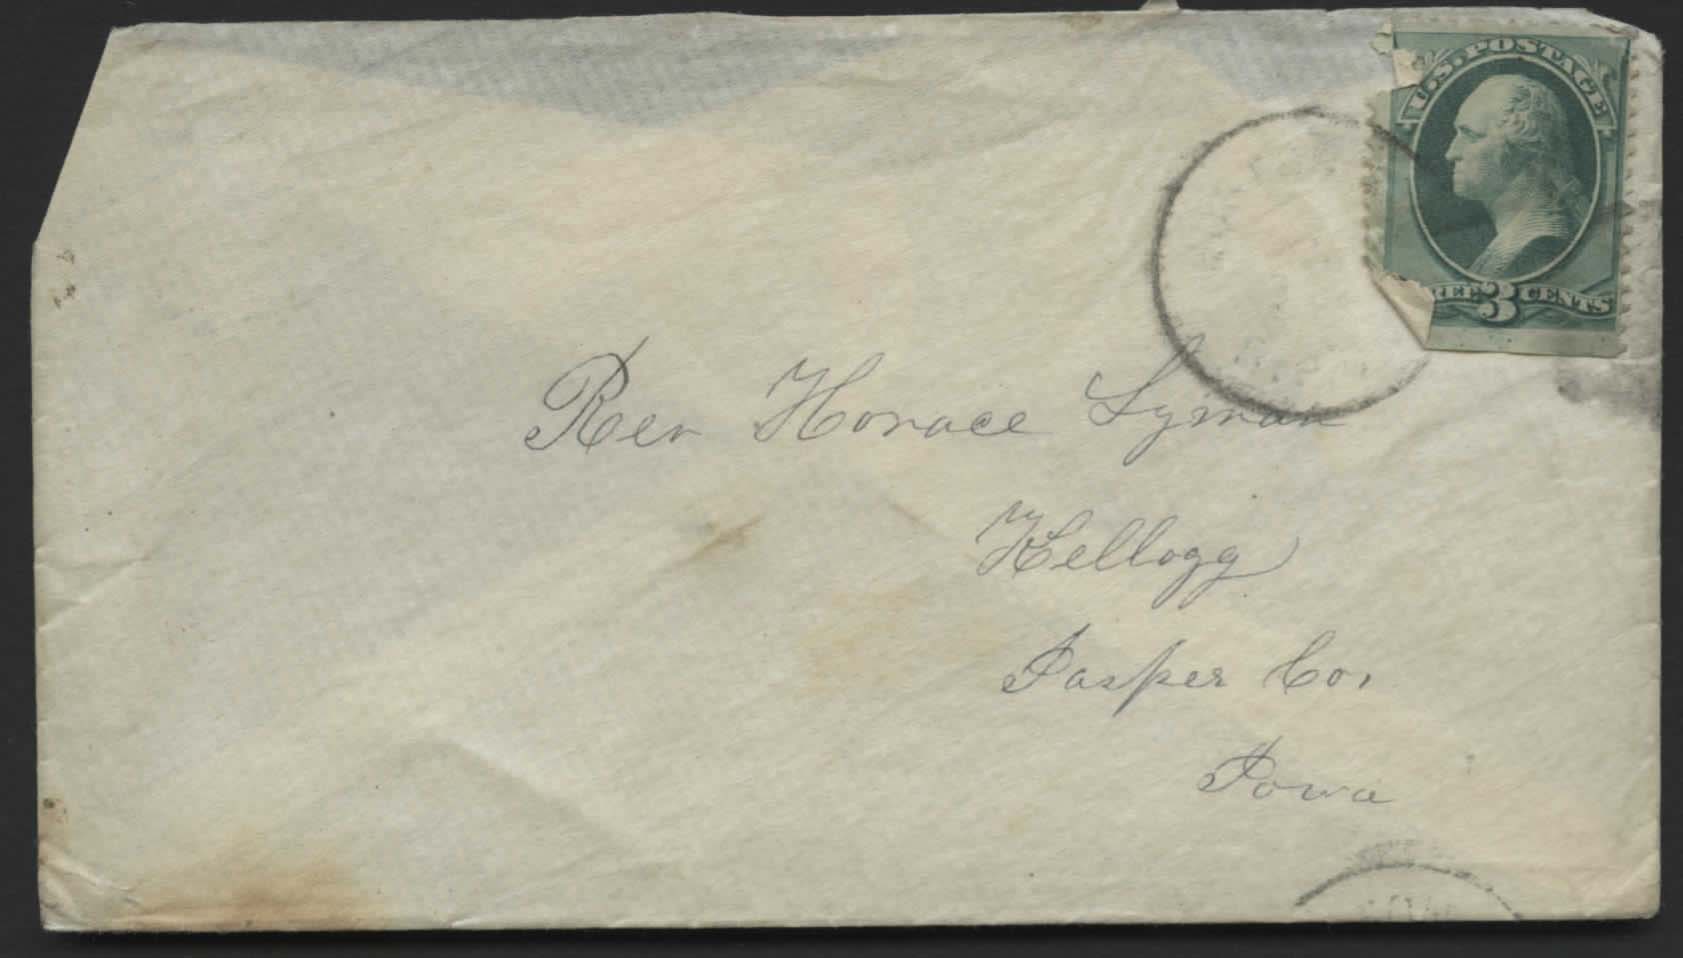 U.S. POSTAGE
REE 3 CENTS
Rev Horace Lyman
Kellogg
Jasper Co.
Iowa